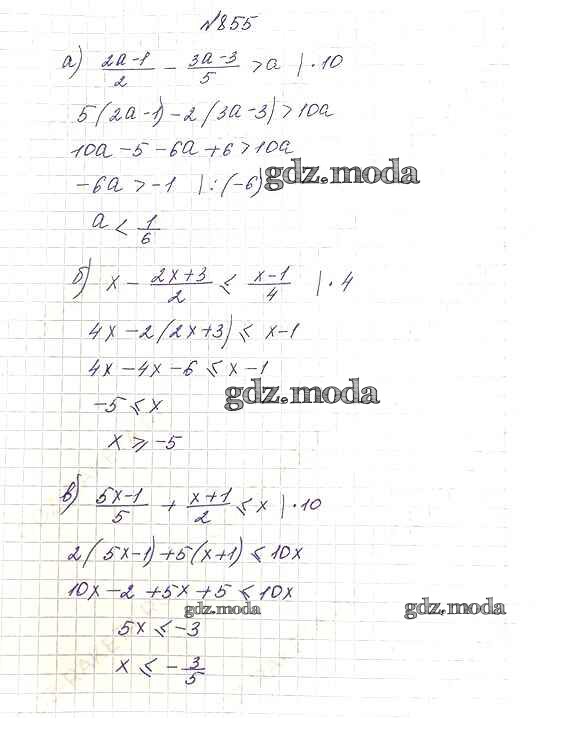 №855
а) (2a-1)/2 - (3a-3)/5 > a |·10
5(2a-1)-2(3a-3)>10a
10a-5-6a+6>10a
-6a>-1 |:(-6)
gdz.moda
a < 1/6
б) x - (2x+3)/2 ⩽ (x-1)/4 |·4
4x-2(2x+3)⩽x-1
4x-4x-6⩽x-1
gdz.moda
-5⩽x
x⩾-5
в) (5x-1)/5 + (x+1)/2 ⩽ x |·10
2(5x-1)+5(x+1)⩽10x
10x-2+5x+5⩽10x
gdz.moda gdz.moda
5x⩽-3
x⩽-3/5